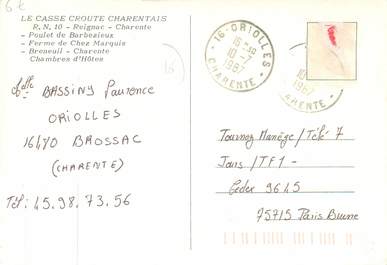 6€
LE CASSE CROUTE CHARENTAIS
R, N, 10 - Reignac - Charente
- Poulet de Barbezieux
- Ferme de Chez Marquis
- Breneuil - Charente
Chambres d'Hôtes
16
Melle BASSINY Laurence
ORIOLLES
16470 BROSSAC
(CHARENTE)
Tél: 45.98.73.56
16 - ORIOLLES
16-30
10-7
1987
CHARENTE
10
1987
ARENTE
Tournez Manège / Télé 7
Jours / TF1 -
Cedex 9645
75715 Paris Brune